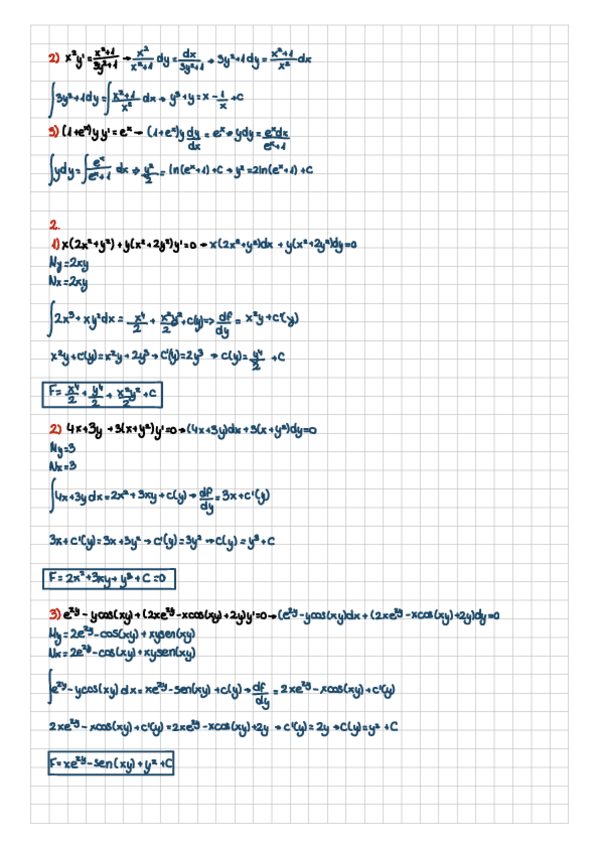 2) x²y' = (x²+1)/(3y²+1) → x²/(x²+1) dy = dx/(3y²+1) → 3y²+1dy = (x²+1)/x² dx
∫3y²+1dy = ∫(x²+1)/x² dx → y³+y = x - 1/x + C
3) (1+eˣ)y y' = eˣ → (1+eˣ)y dy/dx = eˣ → ydy = eˣdx/(eˣ+1)
∫ydy = ∫eˣ/(eˣ+1) dx → y²/2 = ln(eˣ+1) + C → y² = 2ln(eˣ+1) + C
2.
1) x(2x²+y²) + y(x²+2y²)y' = 0 → x(2x²+y²)dx + y(x²+2y²)dy=0
My = 2xy
Nx = 2xy
∫2x³ + xy²dx = x⁴/2 + x²y²/2 + c(y) → df/dy = x²y + c'(y)
x²y + c'(y) = x²y + 2y³ → c'(y) = 2y³ → c(y) = y⁴/2 + C
F = x⁴/2 + y⁴/2 + x²y²/2 + C
2) 4x+3y + 3(x+y²)y' = 0 → (4x+3y)dx + 3(x+y²)dy=0
My = 3
Nx = 3
∫4x+3y dx = 2x² + 3xy + c(y) → df/dy = 3x + c'(y)
3x + c'(y) = 3x + 3y² → c'(y) = 3y² → c(y) = y³ + C
F = 2x² + 3xy + y³ + C = 0
3) e²ʸ - ycos(xy) + (2xe²ʸ - xcos(xy) + 2y)y' = 0 → (e²ʸ - ycos(xy)dx + (2xe²ʸ - xcos(xy) + 2y)dy=0
My = 2e²ʸ - cos(xy) + xysen(xy)
Nx = 2e²ʸ - cos(xy) + xysen(xy)
∫e²ʸ - ycos(xy) dx = xe²ʸ - sen(xy) + c(y) → df/dy = 2xe²ʸ - xcos(xy) + c'(y)
2xe²ʸ - xcos(xy) + c'(y) = 2xe²ʸ - xcos(xy) + 2y → c'(y) = 2y → C(y) = y² + C
F = xe²ʸ - sen(xy) + y² + C